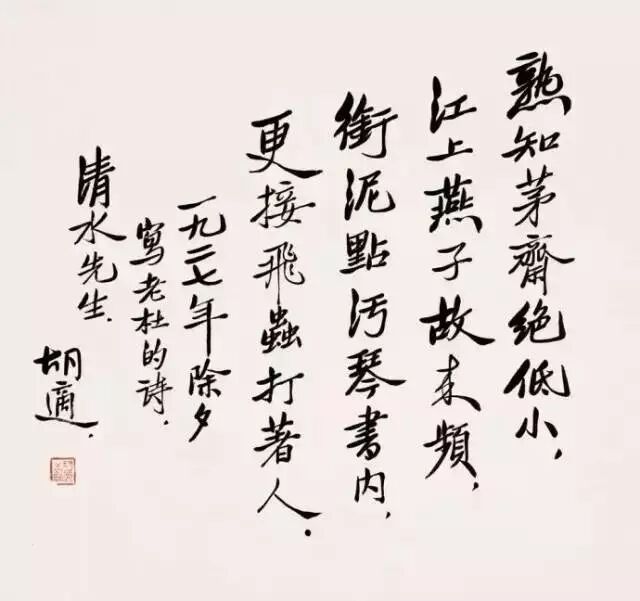 熟知茅齋绝低小，
江上燕子故来頻，
銜泥點汚琴書内，
更接飛蟲打著人．
一九二七年除夕
寫老杜的詩，
清水先生．
胡適．